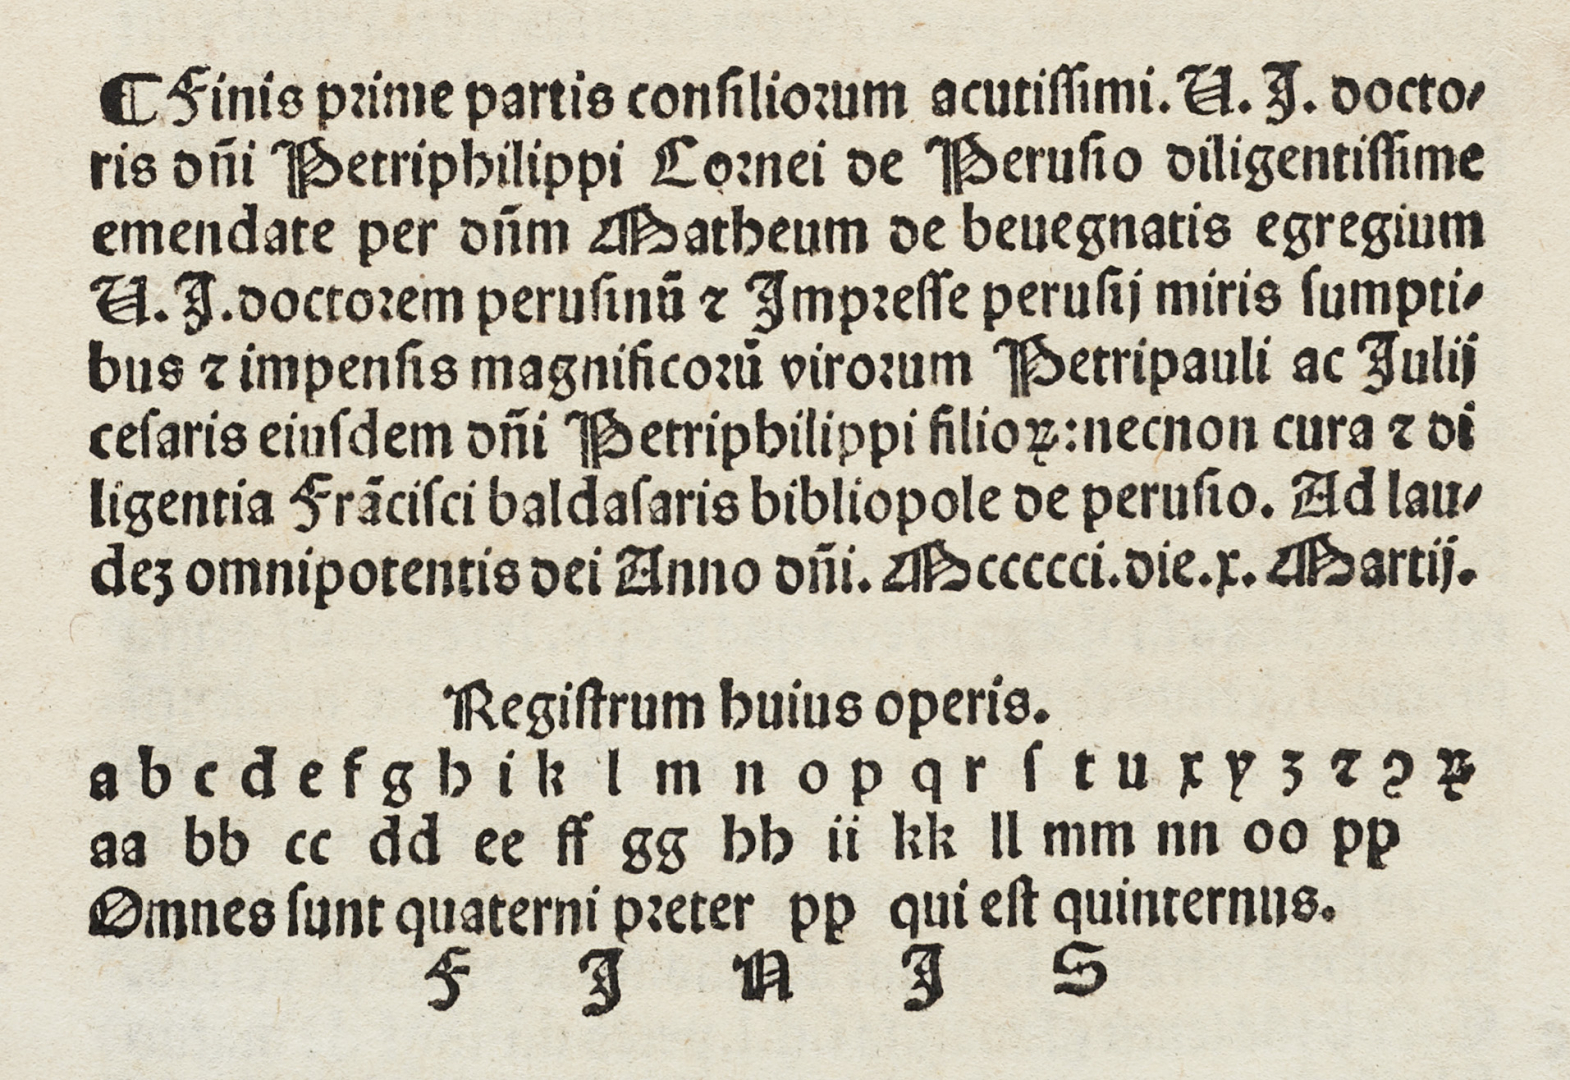 ¶ Finis prime partis consiliorum acutissimi. U. J. docto⸗
ris dñi Petriphilippi Cornei de Perusio diligentissime
emendate per dñm Matheum de beuegnatis egregium
U. J. doctorem perusinū ⁊ Impresse perusij miris sumpti⸗
bus ⁊ impensis magnificorū virorum Petripauli ac Julij
cesaris eiusdem dñi Petriphilippi filioꝝ: necnon cura ⁊ di
ligentia Frācisci baldasaris bibliopole de perusio. Ad lau⸗
deʒ omnipotentis dei Anno dñi. Mccccci. die. x. Martij.
Registrum huius operis.
a b c d e f g h i k l m n o p q r ſ t u x y z ⁊ ꝯ ꝝ
aa bb cc dd ee ff gg hh ii kk ll mm nn oo pp
Omnes sunt quaterni preter pp qui est quinternus.
F J N J S